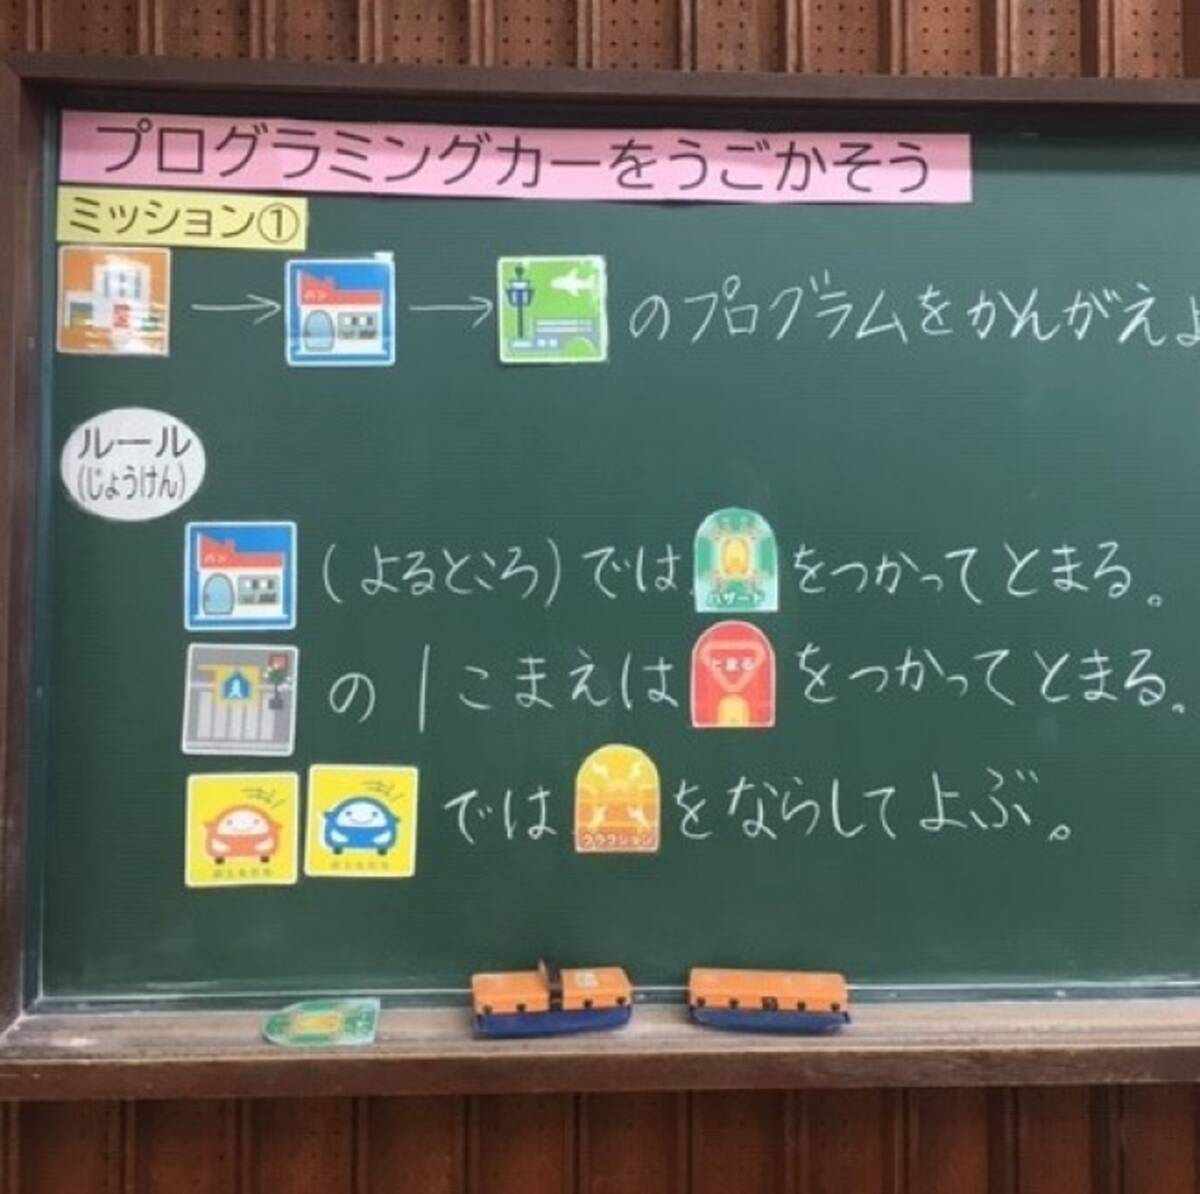 プログラミングカーをうごかそう
ミッション①
パン
のプログラムをかんがえよ
ルール
(じょうけん)
パン (よるところ)では ハザード をつかってとまる。
の1こまえは とまる をつかってとまる。
では クラクション をならしてよぶ。